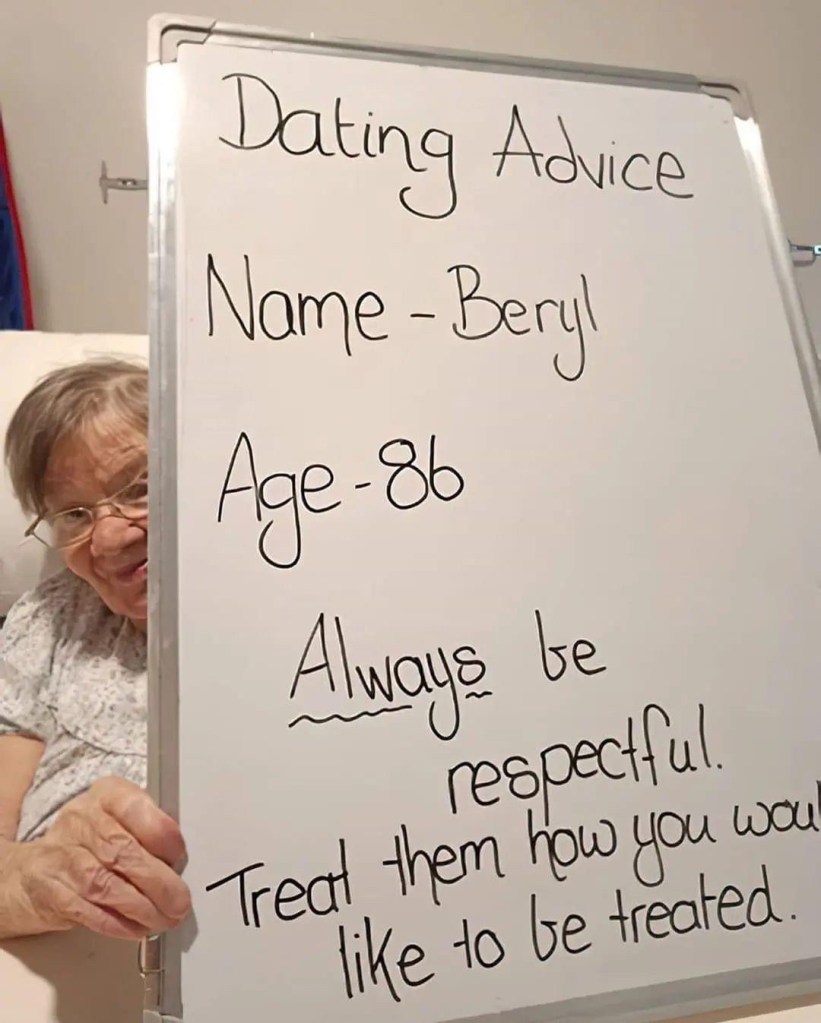 Dating Advice
Name - Beryl
Age - 86
Always be
respectful.
Treat them how you woul
like to be treated.